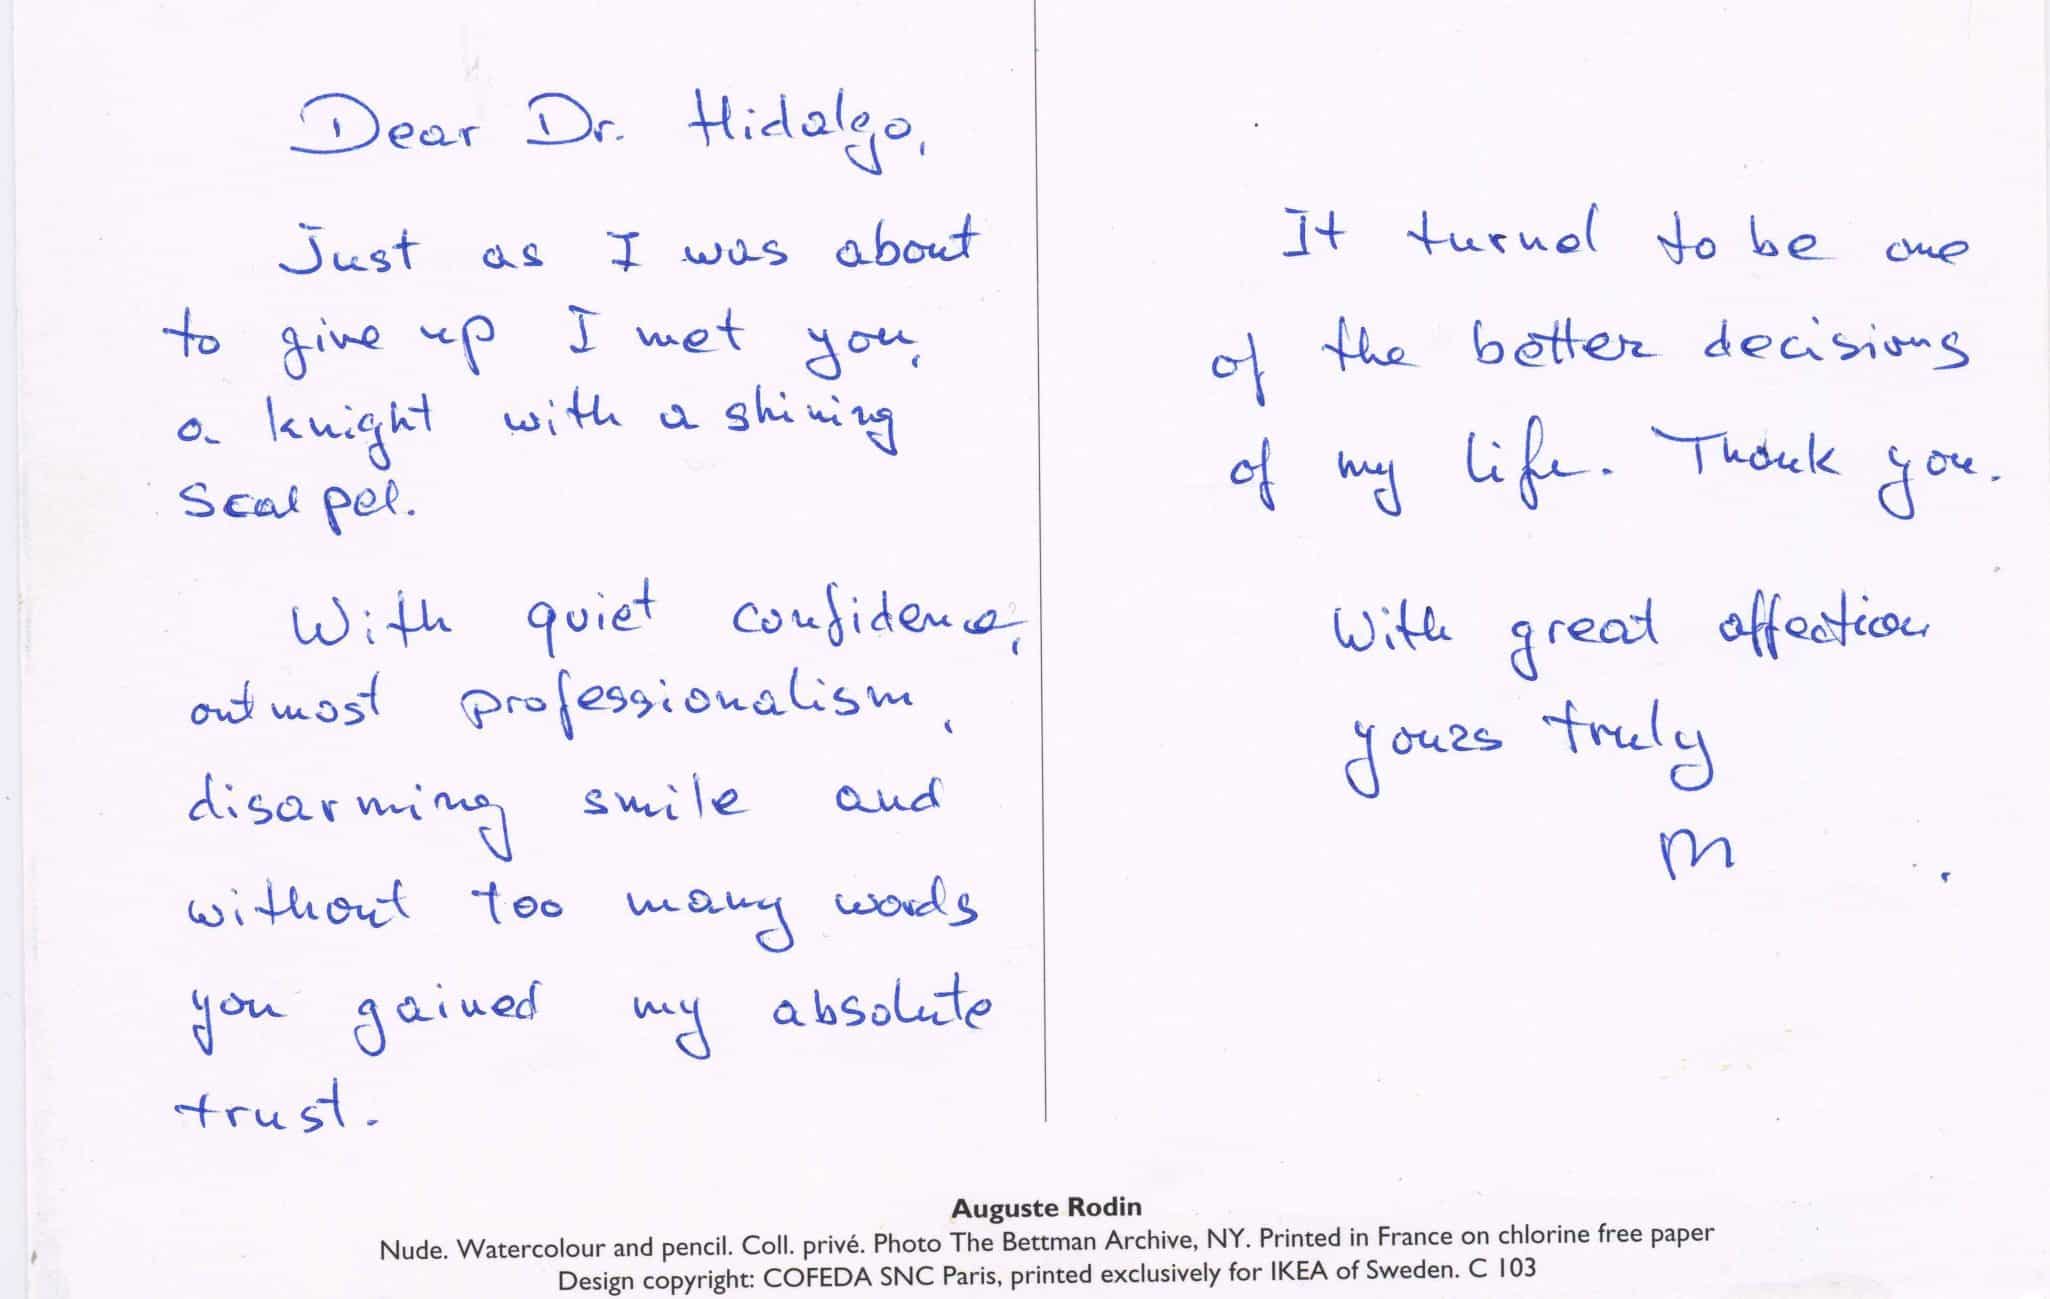 Dear Dr. Hidalgo,
Just as I was about
to give up I met you,
a knight with a shining
scalpel.
With quiet confidence,
outmost professionalism,
disarming smile and
without too many words
you gained my absolute
trust.
It turned to be one
of the better decisions
of my life. Thank you.
With great affection
yours truly
M
Auguste Rodin
Nude. Watercolour and pencil. Coll. privé. Photo The Bettman Archive, NY. Printed in France on chlorine free paper
Design copyright: COFEDA SNC Paris, printed exclusively for IKEA of Sweden. C 103